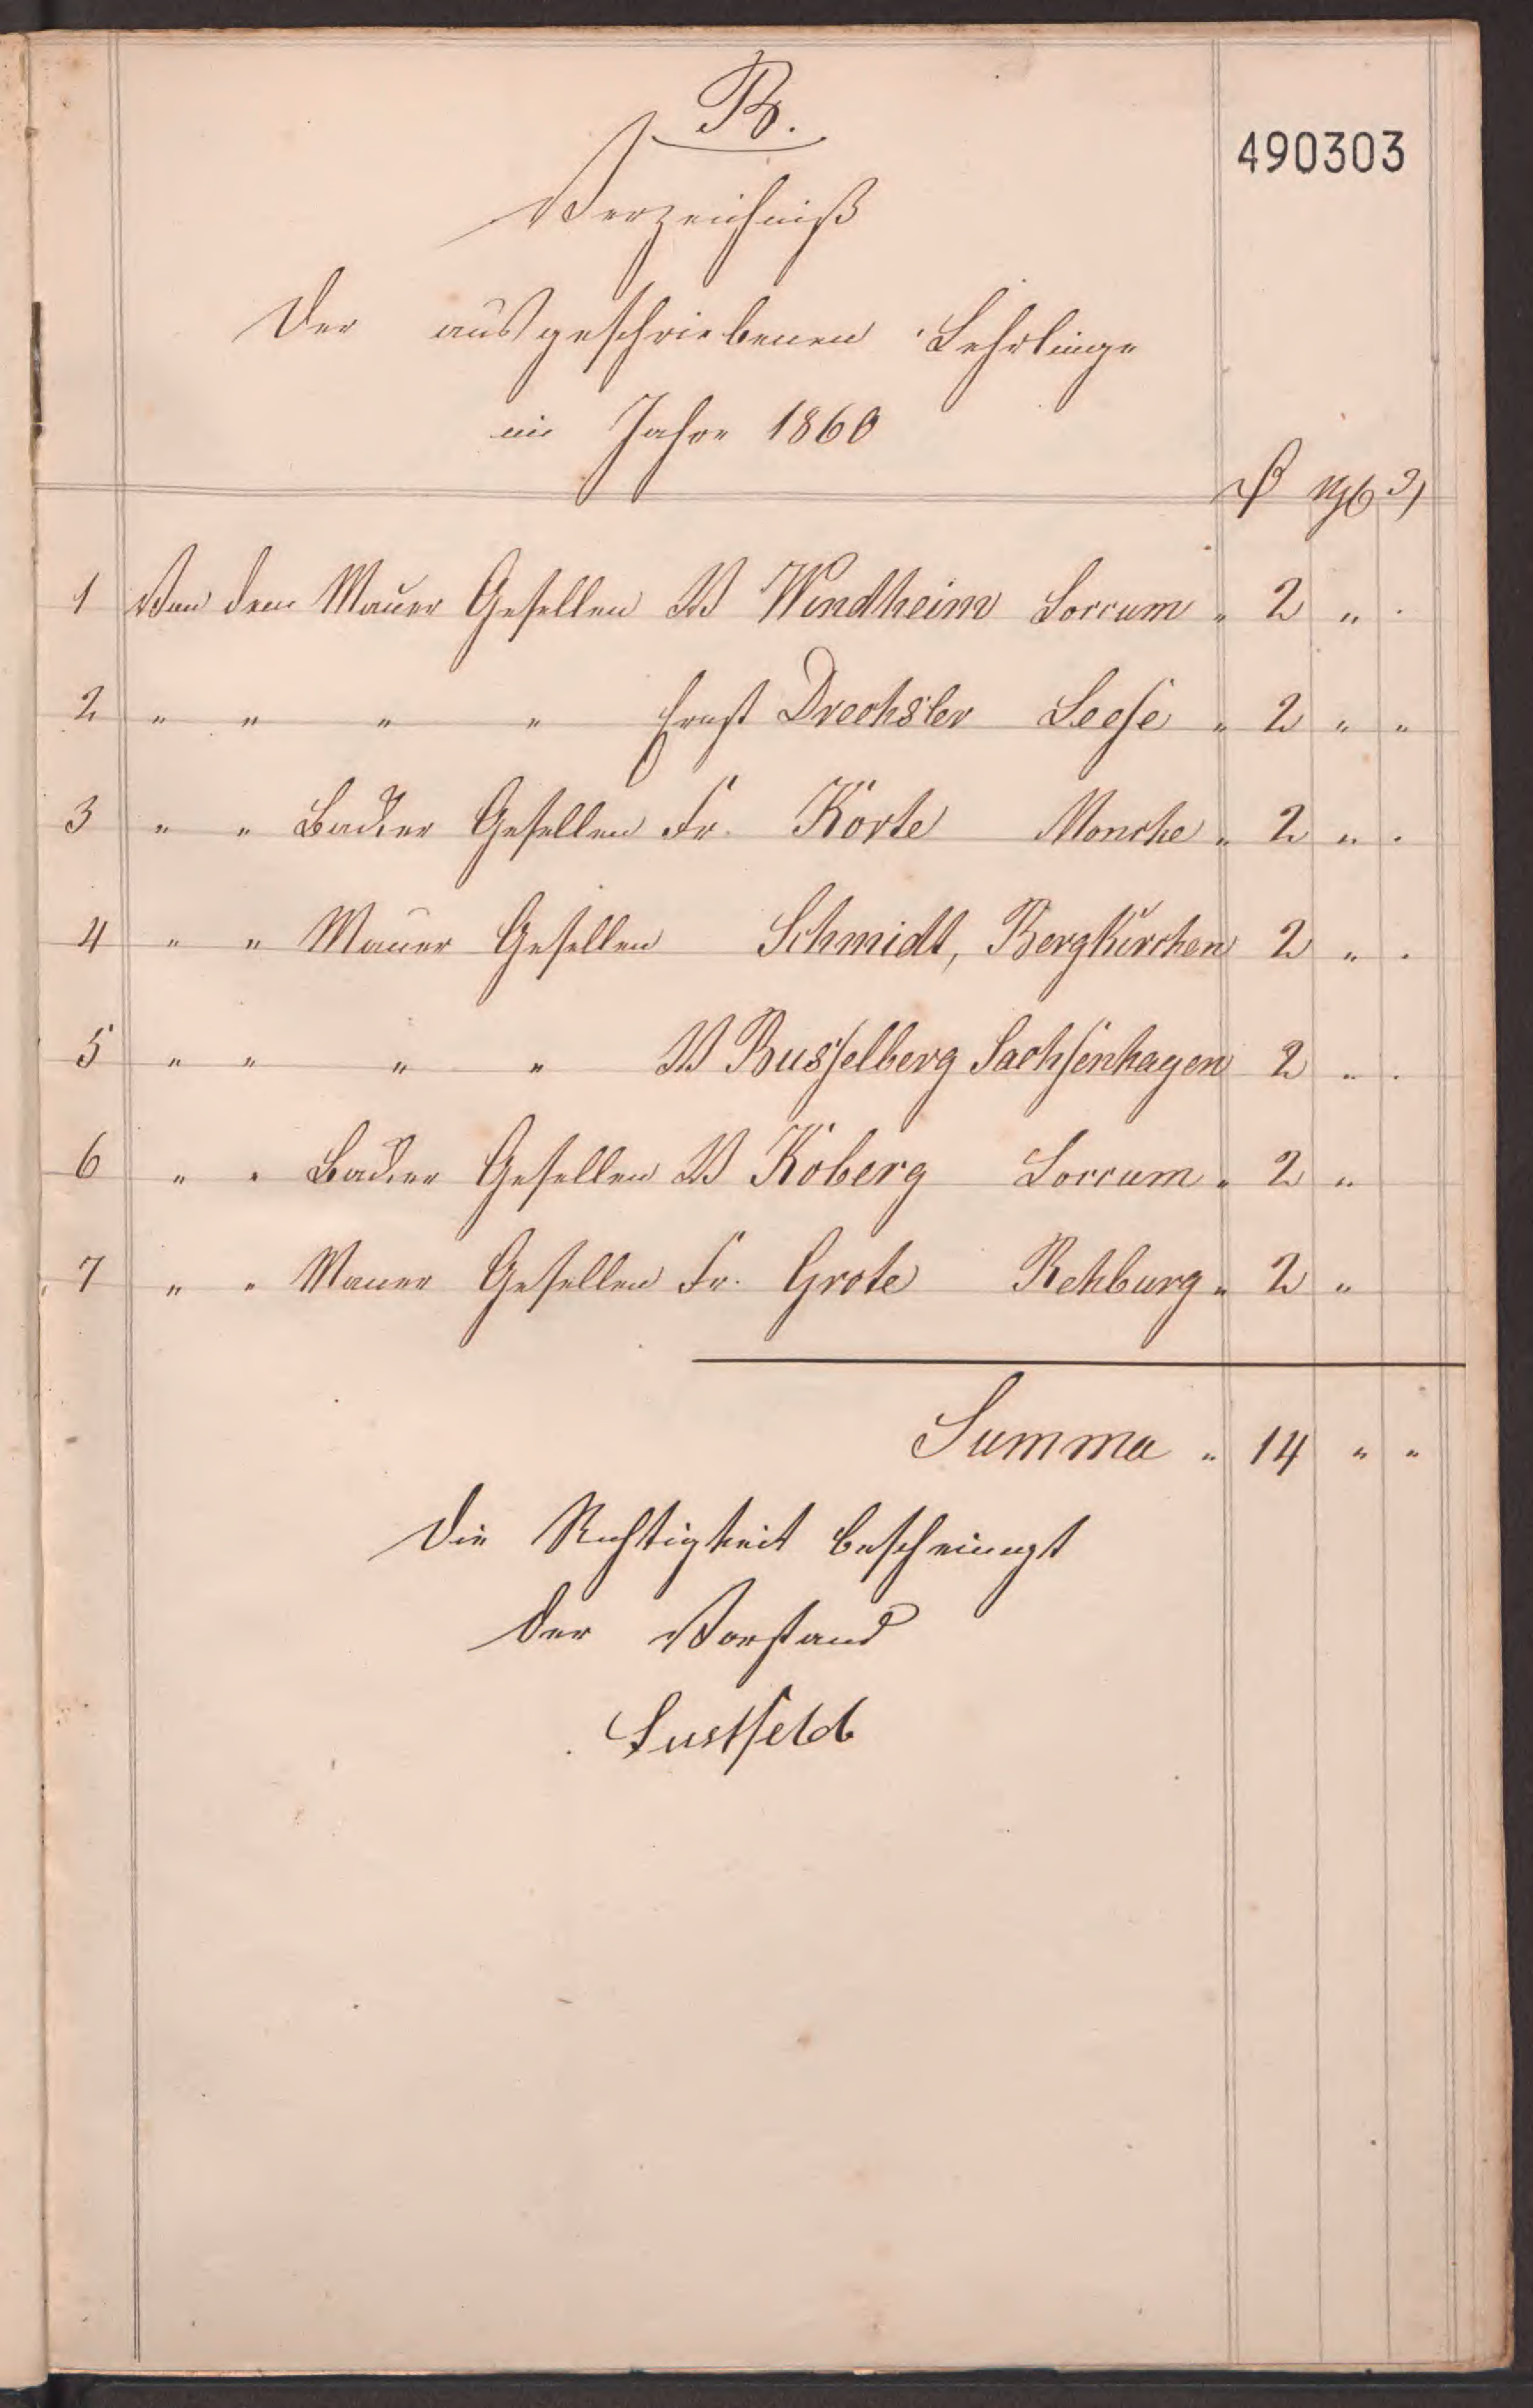 B.
490303
Verzeichniß
der ausgeschriebenen Lehrlinge
im Jahre 1860
1 Von dem Mauer Gesellen W Windheim Loccum " 2 " .
2 " " " " Ernst Drechsler Leese " 2 " "
3 " " Gesellen Fr. Körte " 2 " .
4 " " Mauer Gesellen Schmidt, Bergkirchen 2 " .
5 " " " " W Busselberg Sachsenhagen 2 " .
6 " " Gesellen W Köberg Loccum " 2 "
7 " " Mauer Gesellen Fr. Grote Rehburg " 2 "
Summa " 14 " "
Die Richtigkeit bescheinigt
Der Vorstand
Lustfeld